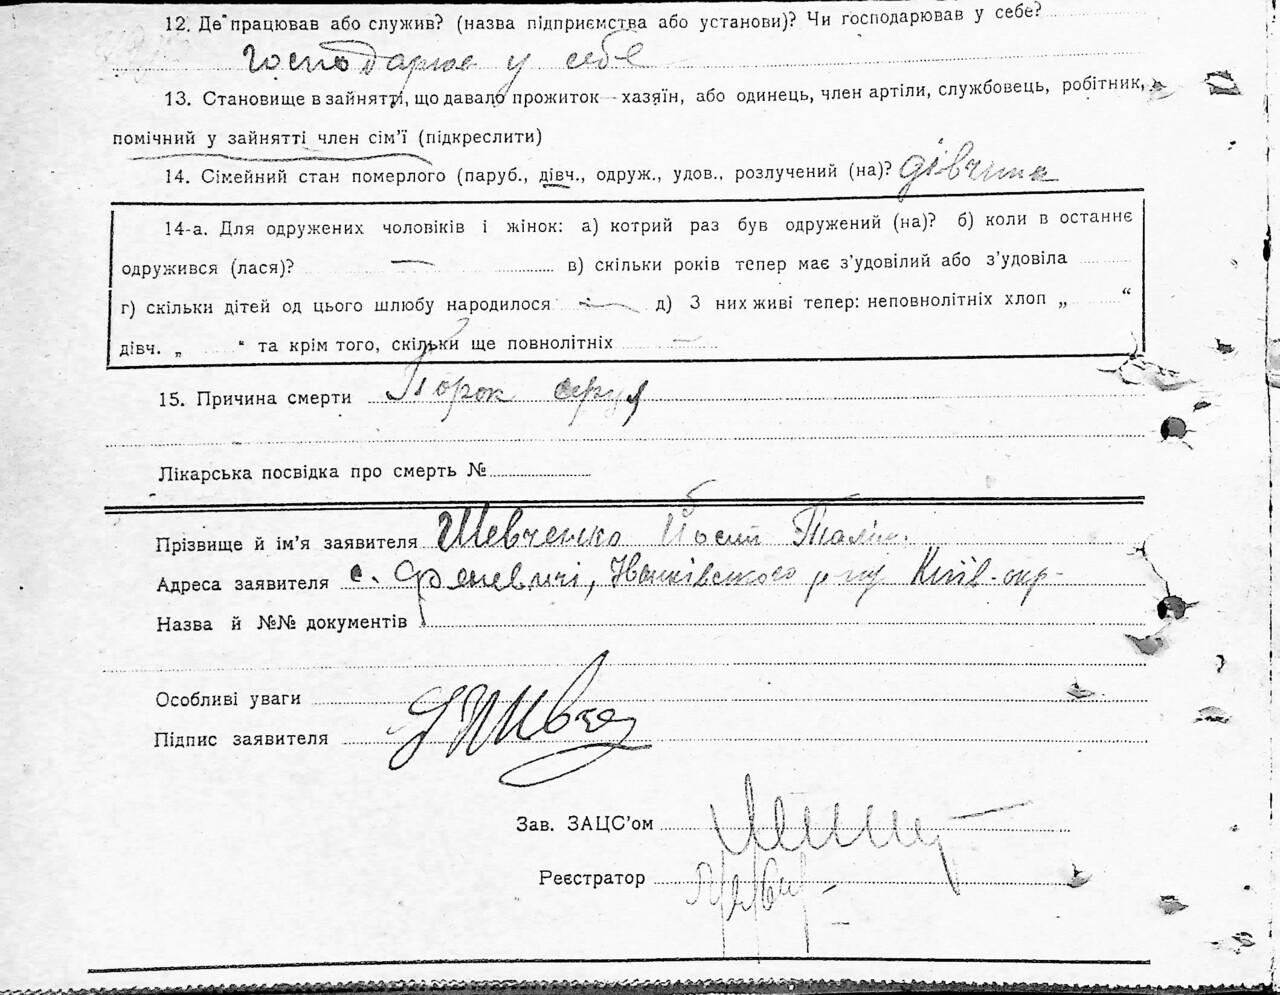 12. Де працював або служив? (назва підприємства або установи)? Чи господарював у себе?
Господарює у себе
13. Становище в зайнятті, що давало прожиток — хазяїн, або одинець, член артілі, службовець, робітник,
помічний у зайнятті член сім'ї (підкреслити)
14. Сімейний стан померлого (паруб., дівч., одруж., удов., розлучений (на)? дівчина
14-а. Для одружених чоловіків і жінок: а) котрий раз був одружений (на)? б) коли в останнє
одружився (лася)? — в) скільки років тепер має з'удовілий або з'удовіла
г) скільки дітей од цього шлюбу народилося — д) З них живі тепер: неповнолітніх хлоп „ “
дівч. „ “ та крім того, скільки ще повнолітніх —
15. Причина смерти Порок серця
Лікарська посвідка про смерть №
Прізвище й ім'я заявителя Шевченко Йосип
Адреса заявителя с. Феневичі, Іванківського р-ну Київ-окр-
Назва й №№ документів
Особливі уваги
Підпис заявителя
Зав. ЗАЦС'ом
Реєстратор